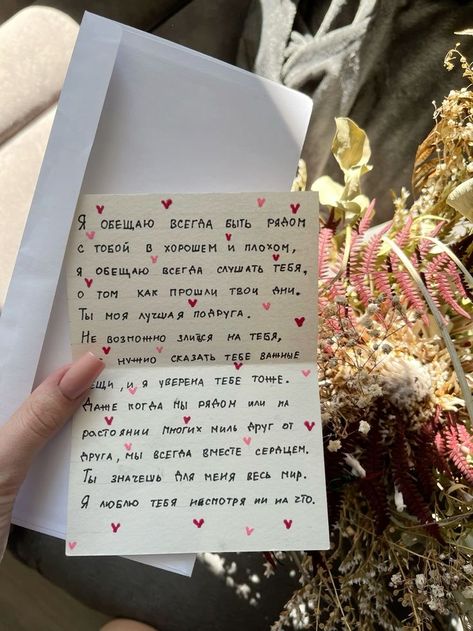 Я ОБЕЩАЮ ВСЕГДА БЫТЬ РЯДОМ
С ТОБОЙ В ХОРОШЕМ И ПЛОХОМ,
Я ОБЕЩАЮ ВСЕГДА СЛУШАТЬ ТЕБЯ,
О ТОМ КАК ПРОШЛИ ТВОИ ДНИ.
ТЫ МОЯ ЛУЧШАЯ ПОДРУГА.
НЕ ВОЗМОЖНО ЗЛИТЬСЯ НА ТЕБЯ,
НУЖНО СКАЗАТЬ ТЕБЕ ВАЖНЫЕ
ЕЩИ, И Я УВЕРЕНА ТЕБЕ ТОЖЕ.
ДАЖЕ КОГДА МЫ РЯДОМ ИЛИ НА
РАСТОЯНИИ МНОГИХ МИЛЬ ДРУГ ОТ
ДРУГА, МЫ ВСЕГДА ВМЕСТЕ СЕРДЦЕМ.
ТЫ ЗНАЧЕШЬ ДЛЯ МЕНЯ ВЕСЬ МИР.
Я ЛЮБЛЮ ТЕБЯ НЕСМОТРЯ НИ НА ЧТО.